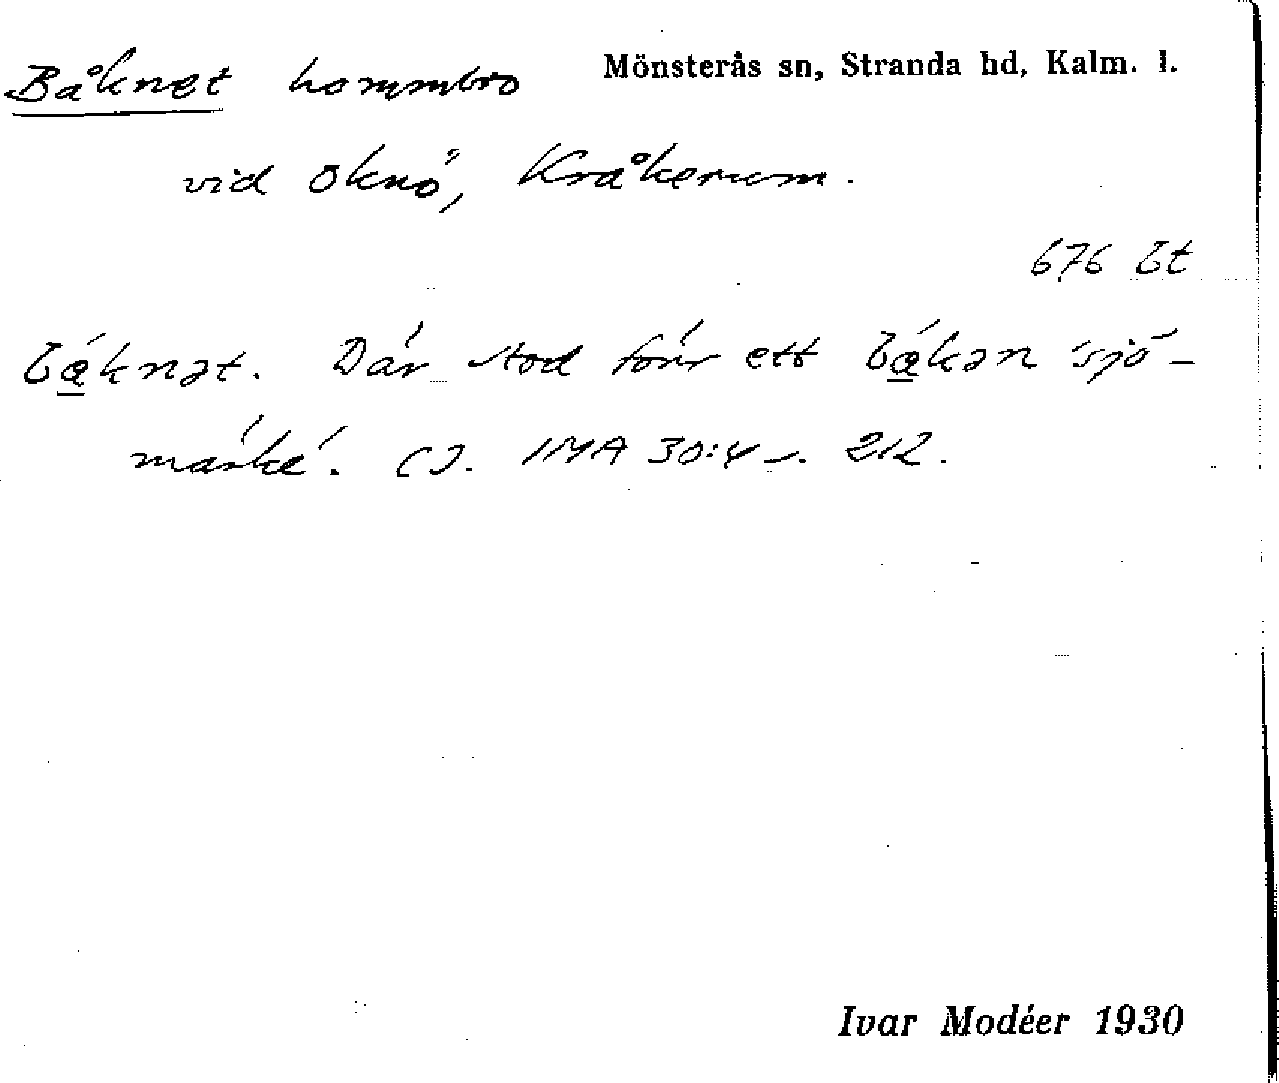 Båknet hommbro Mönsterås sn, Stranda hd, Kalm. l.
vid Oknö, Kråkerum.
676 bt
bá̱knət. Där stod förr ett bá̱kən 'sjö-
märke'. (J. IMA 30:4 s. 212.
Ivar Modéer 1930